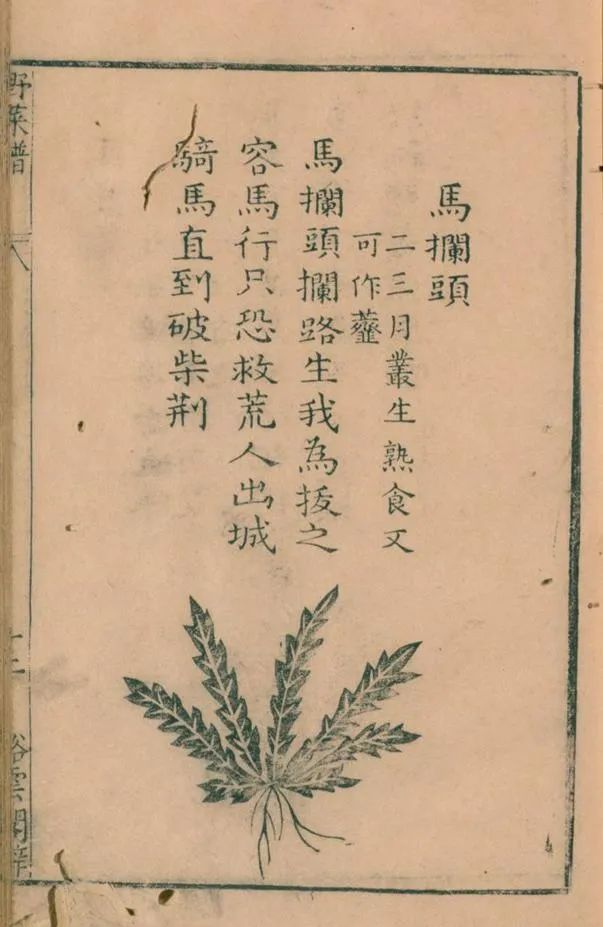 馬攔頭
二三月叢生熟食又
可作虀
馬攔頭攔路生我為拔之
容馬行只恐救荒人出城
騎馬直到破柴荆
野菜譜